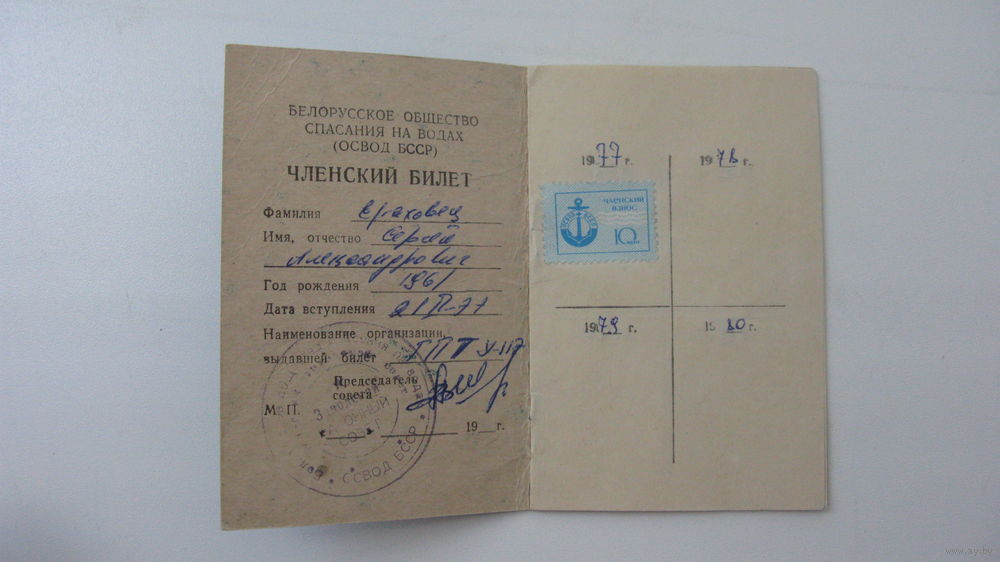 БЕЛОРУССКОЕ ОБЩЕСТВО
СПАСАНИЯ НА ВОДАХ
(ОСВОД БССР)
ЧЛЕНСКИЙ БИЛЕТ
Фамилия Ераховец
Имя, отчество Сергей
Александрович
Год рождения 1961
Дата вступления 2/II-77
Наименование организации,
выдавшей билет ГПТУ-117
Председатель
совета
М. П.
19 г.
ОСВОД БССР
1977 г.
1978 г.
ЧЛЕНСКИЙ
ВЗНОС
10 коп
1979 г.
1980 г.
www.ay.by